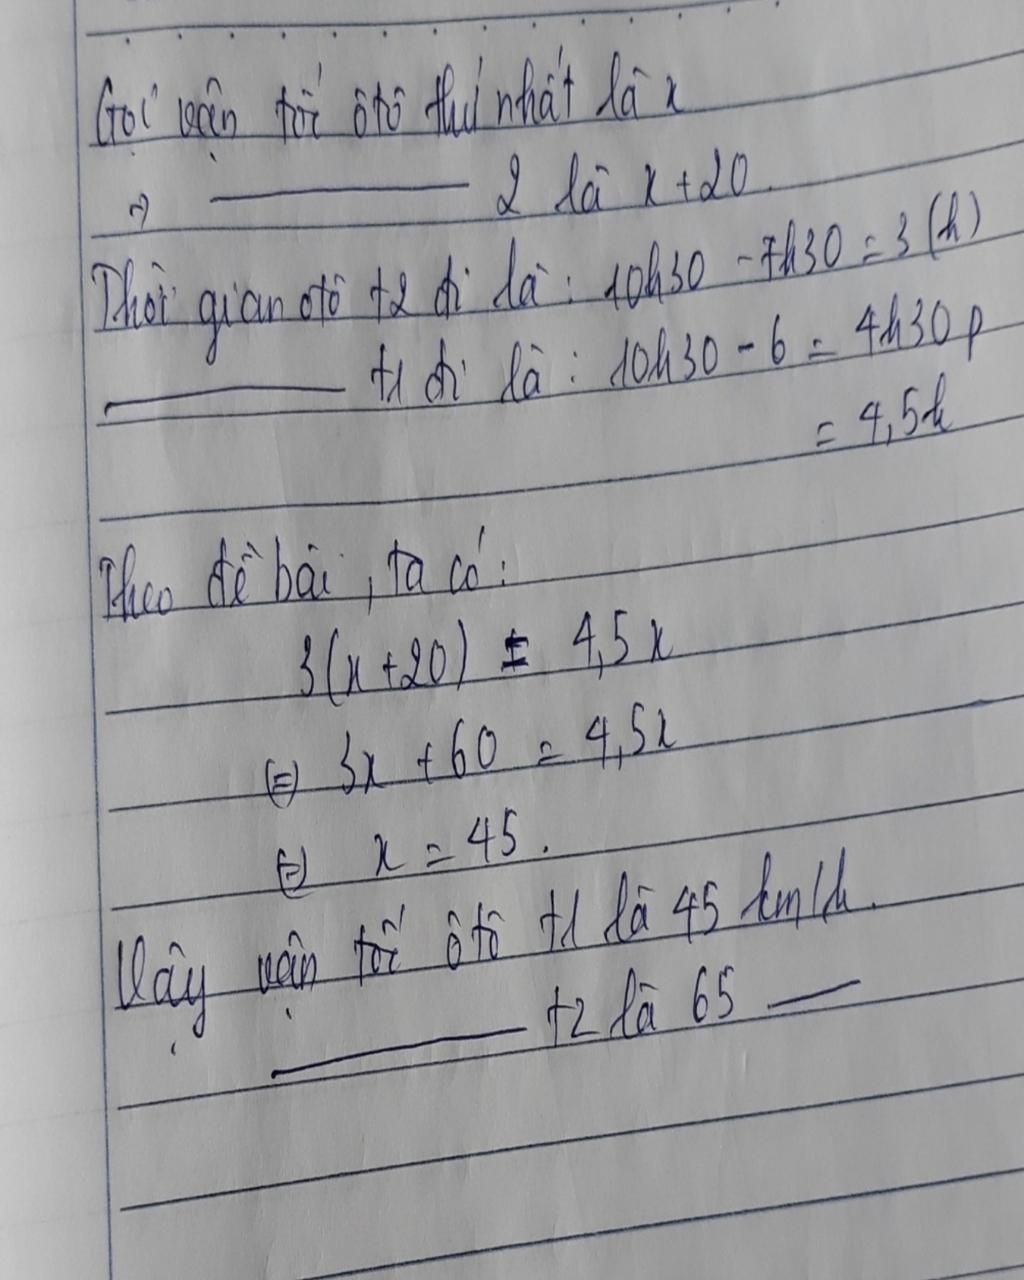 Gọi vận tốc ôtô thứ nhất là x
=> ——— 2 là x + 20.
Thời gian ôtô t2 đi là : 10h30 - 7h30 = 3 (h)
——— t1 đi là : 10h30 - 6 = 4h30p
= 4,5h
Theo đề bài, ta có :
3(x + 20) = 4,5x
(=) 3x + 60 = 4,5x
(=) x = 45.
Vậy vận tốc ôtô t1 là 45 km/h.
——— t2 là 65 —